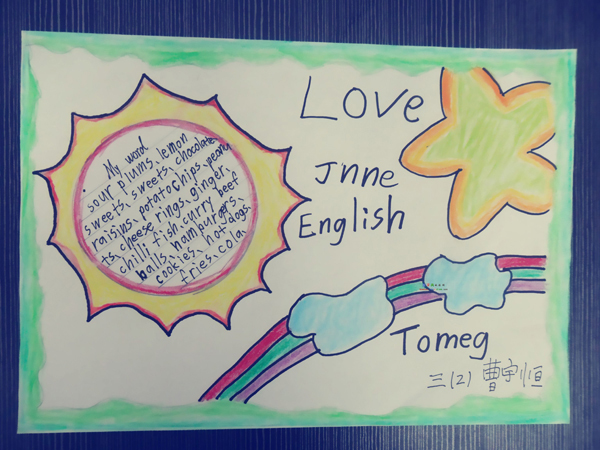 My word
sour plums、lemon
sweets、sweets、chocolate、
raisins、potato chips、peanu
ts、cheese rings、ginger、
chilli、fish、curry beef
balls、hampurgers、
cookies、hot dogs、
fries、cola、
Love
Jnne
English
Tomeg
三(2) 曹宇恒